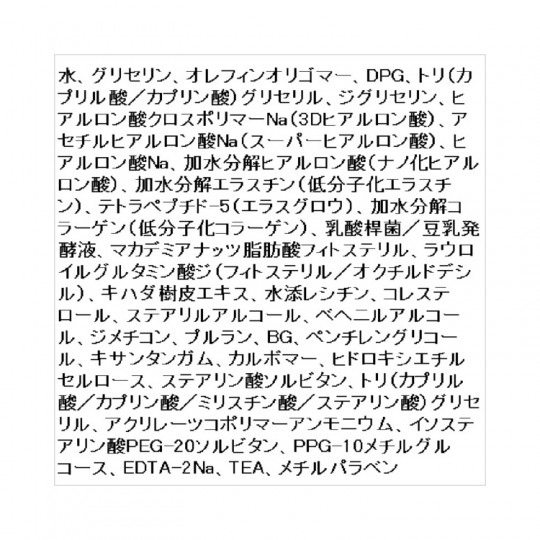 水、グリセリン、オレフィンオリゴマー、DPG、トリ(カ
プリル酸／カプリン酸)グリセリル、ジグリセリン、ヒ
アルロン酸クロスポリマーNa(3Dヒアルロン酸)、ア
セチルヒアルロン酸Na(スーパーヒアルロン酸)、ヒ
アルロン酸Na、加水分解ヒアルロン酸(ナノ化ヒアル
ロン酸)、加水分解エラスチン(低分子化エラスチ
ン)、テトラペプチド-5(エラスグロウ)、加水分解コ
ラーゲン(低分子化コラーゲン)、乳酸桿菌／豆乳発
酵液、マカデミアナッツ脂肪酸フィトステリル、ラウロ
イルグルタミン酸ジ(フィトステリル／オクチルドデシ
ル)、キハダ樹皮エキス、水添レシチン、コレステ
ロール、ステアリルアルコール、ベヘニルアルコー
ル、ジメチコン、プルラン、BG、ペンチレングリコー
ル、キサンタンガム、カルボマー、ヒドロキシエチル
セルロース、ステアリン酸ソルビタン、トリ(カプリル
酸／カプリン酸／ミリスチン酸／ステアリン酸)グリセ
リル、アクリレーツコポリマーアンモニウム、イソステ
アリン酸PEG-20ソルビタン、PPG-10メチルグル
コース、EDTA-2Na、TEA、メチルパラベン